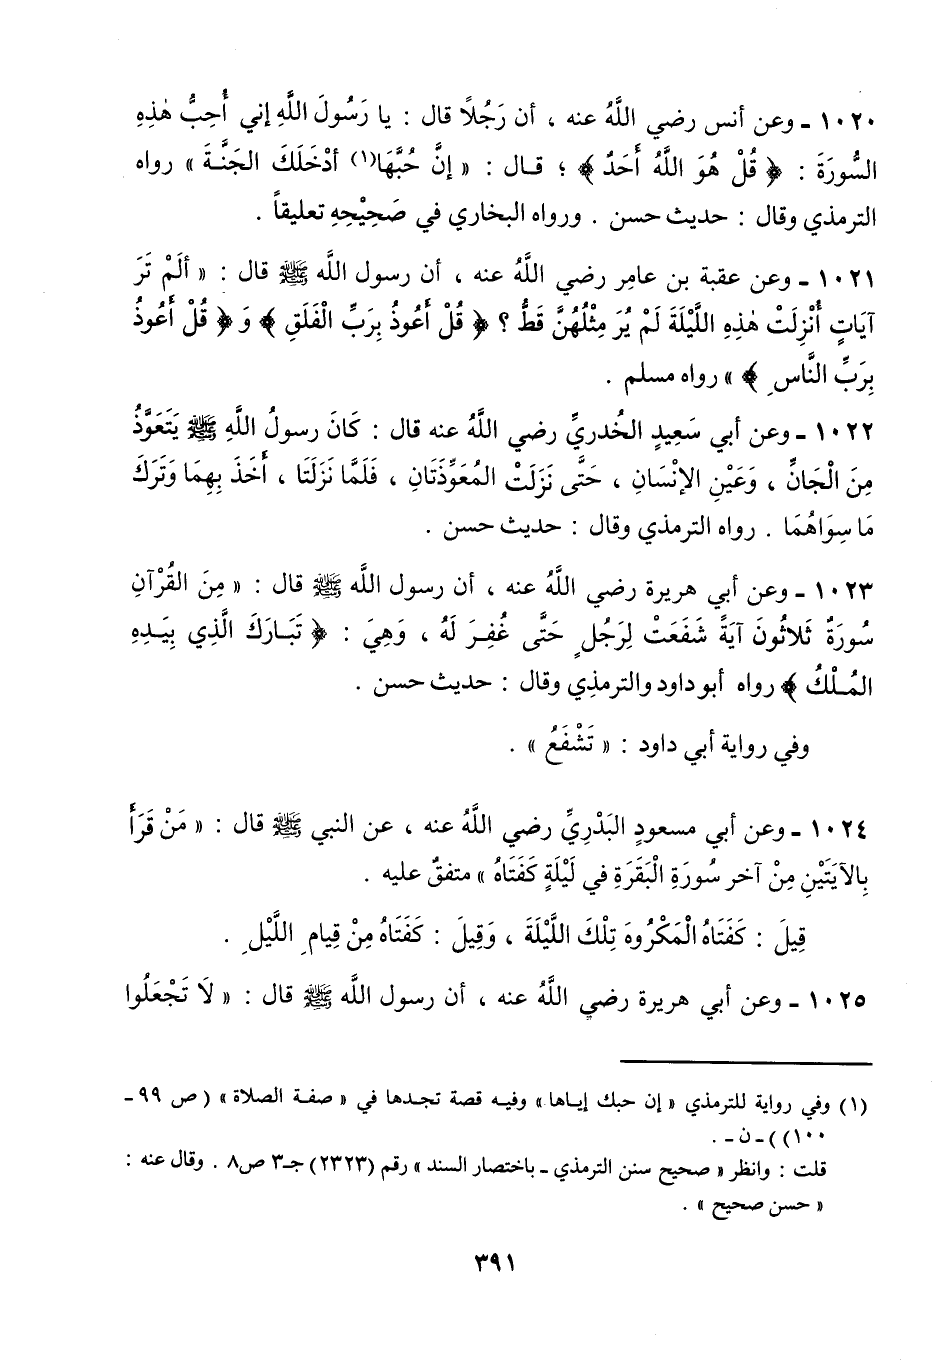 ١٠٢٠ ـ وعن أنس رضي اللَّهُ عنه ، أن رَجُلاً قال : يا رَسُولَ اللَّهِ إني أُحِبُّ هٰذِهِ
السُّورَةَ : ﴿ قُلْ هُوَ اللَّهُ أَحَدٌ ﴾ ؛ قـال : « إنَّ حُبَّهَا(١) أدْخَلَكَ الجَنَّـةَ » رواه
الترمذي وقال : حديث حسن . ورواه البخاري في صَحِيْحِهِ تعليقاً .
١٠٢١ ـ وعن عقبة بن عامِر رضي اللَّهُ عنه ، أن رسول اللَّه ﷺ قال : « ألَمْ تَرَ
آيَاتٍ أُنْزِلَتْ هٰذِهِ اللَّيْلَةَ لَمْ يُرَ مِثْلُهُنَّ قَطُّ ؟ ﴿ قُلْ أَعُوذُ بِرَبِّ الْفَلَقِ ﴾ وَ ﴿ قُلْ أَعُوذُ
بِرَبِّ النَّاسِ ﴾ » رواه مسلم .
١٠٢٢ ـ وعن أبي سَعِيدٍ الخُدريِّ رضي اللَّهُ عنه قال : كَانَ رسولُ اللَّهِ ﷺ يَتَعَوَّذُ
مِنَ الْجَانِّ ، وَعَيْنِ الإنْسَانِ ، حَتَّى نَزَلَتْ المُعَوِّذَتَانِ ، فَلَمَّا نَزَلَتَا ، أَخَذَ بِهِمَا وَتَرَكَ
مَا سِوَاهُمَا . رواه الترمذي وقال : حديث حسن .
١٠٢٣ ـ وعن أبي هريرة رضي اللَّهُ عنه ، أن رسول اللَّه ﷺ قال : « مِنَ القُرْآنِ
سُورَةٌ ثَلاثُونَ آيَةً شَفَعَتْ لِرَجُلٍ حَتَّى غُفِـرَ لَهُ ، وَهِيَ : ﴿ تَبَـارَكَ الَّذِي بِيَـدِهِ
المُـلْكُ ﴾ رواه أبو داود والترمذِي وقال : حديث حسن .
وفي رواية أبي داود : « تَشْفَعُ » .
١٠٢٤ ـ وعن أبي مسعودٍ البَدْرِيِّ رضي اللَّهُ عنه ، عن النبي ﷺ قال : « مَنْ قَرَأَ
بِالآيَتَيْنِ مِنْ آخر سُورَةِ الْبَقَرَةِ في لَيْلَةٍ كَفَتَاهُ » متفقٌ عليه .
قِيلَ : كَفَتَاهُ الْمَكْرُوهَ تِلْكَ اللَّيْلَةَ ، وَقِيلَ : كَفَتَاهُ مِنْ قِيامِ اللَّيْلِ .
١٠٢٥ ـ وعن أبي هريرة رضي اللَّهُ عنه ، أن رسول اللَّه ﷺ قال : « لَا تَجْعَلُوا
(١) وفي رواية للترمذي « إن حبك إيـاها » وفيـه قصة تجـدها في « صفـة الصلاة » ( ص ٩٩ ـ
١٠٠ ) ) ـ ن ـ .
قلت : وانظر « صحيح سنن الترمذي ـ باختصار السند » رقم (٢٣٢٣) جـ٣ ص٨ . وقال عنه :
« حسن صحيح » .
٣٩١